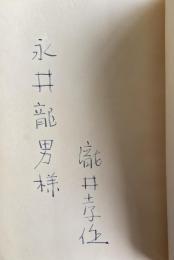 永井龍男様
瀧井孝作